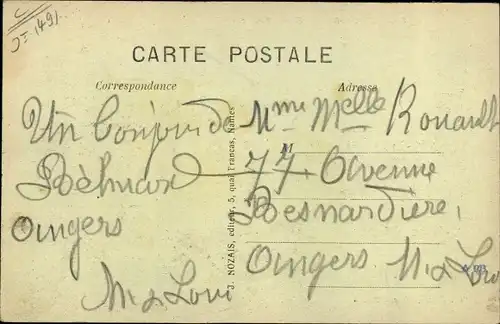 J= 1491
CARTE POSTALE
Correspondance
Adresse
Un bonjour de
Béhuard
Angers
M & Loire
Mme Melle Rouault
77 Avenue
Besnardière,
Angers M & Loire
J. NOZAIS, editeur, 5, quai Francas, Nantes